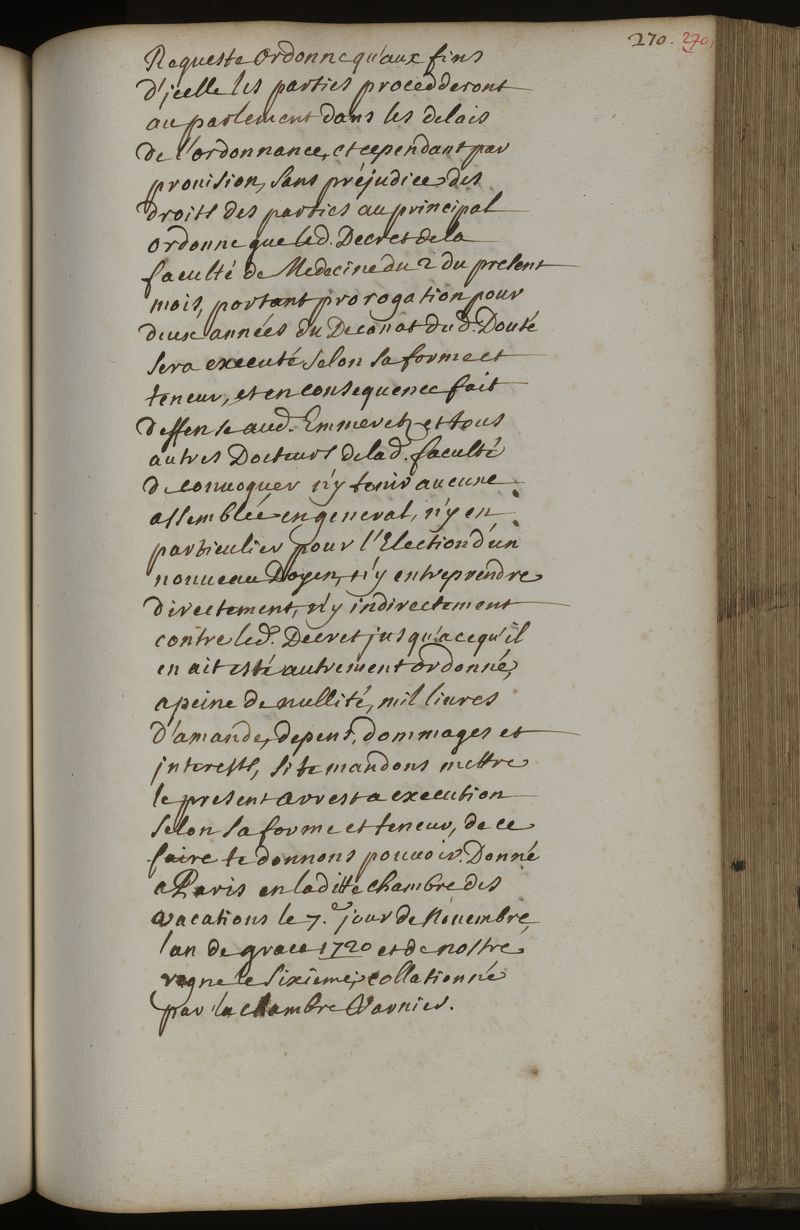 270. 270
Requeste ordonne qu'aux fins
d'jcelle les parties procedderont
au parlement dans les delais
de l'ordonnance, et cependant par
prouision, sans préjudice des
droits des parties au principal
ordonne que led. Decret de la
faculté de Medecine du 2 du present
mois, portant prorogation pour
deux années du Decanat dud. Douté
sera executé selon sa forme et
teneur, et en consequence fait
deffense aud. Emmeretz et tous
autres Docteurs de lad. faculté
de conuoquer n'y tenir aucune
assemblée en general, n'y en
particulier pour l'Election d'un
nouueau Doyen, n'y entreprendre
directement, n'y indirectement
contre led. Decret jusqu'a ce qu'il
en ait esté autrement ordonné,
a peine de nullité, mil liures
d'amande, depens, dommages et
jnterests, si te mandons mettre
le present arrest a execution
selon sa forme et teneur, de ce
faire te donnons pouuoir. Donné
a Paris en laditte chambre des
vacations le 7.e jour de Nouembre
l'an de grace 1720 et de nostre
regne le sixieme, collationné
par la chambre Varnier.